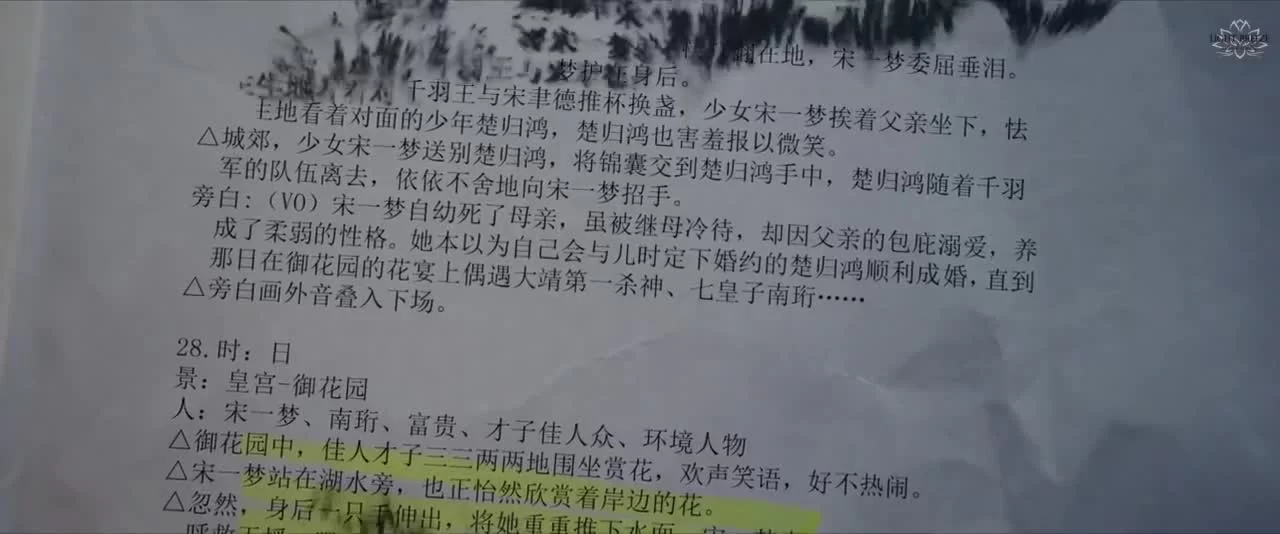 LIGHT BREEZE
翻在地，宋一梦委屈垂泪。
梦护在身后。
千羽王与宋聿德推杯换盏，少女宋一梦挨着父亲坐下，怯
主地看着对面的少年楚归鸿，楚归鸿也害羞报以微笑。
△城郊，少女宋一梦送别楚归鸿，将锦囊交到楚归鸿手中，楚归鸿随着千羽
军的队伍离去，依依不舍地向宋一梦招手。
旁白：（VO）宋一梦自幼死了母亲，虽被继母冷待，却因父亲的包庇溺爱，养
成了柔弱的性格。她本以为自己会与儿时定下婚约的楚归鸿顺利成婚，直到
那日在御花园的花宴上偶遇大靖第一杀神、七皇子南珩……
△旁白画外音叠入下场。
28.时：日
景：皇宫-御花园
人：宋一梦、南珩、富贵、才子佳人众、环境人物
△御花园中，佳人才子三三两两地围坐赏花，欢声笑语，好不热闹。
△宋一梦站在湖水旁，也正怡然欣赏着岸边的花。
△忽然，身后一只手伸出，将她重重推下水面